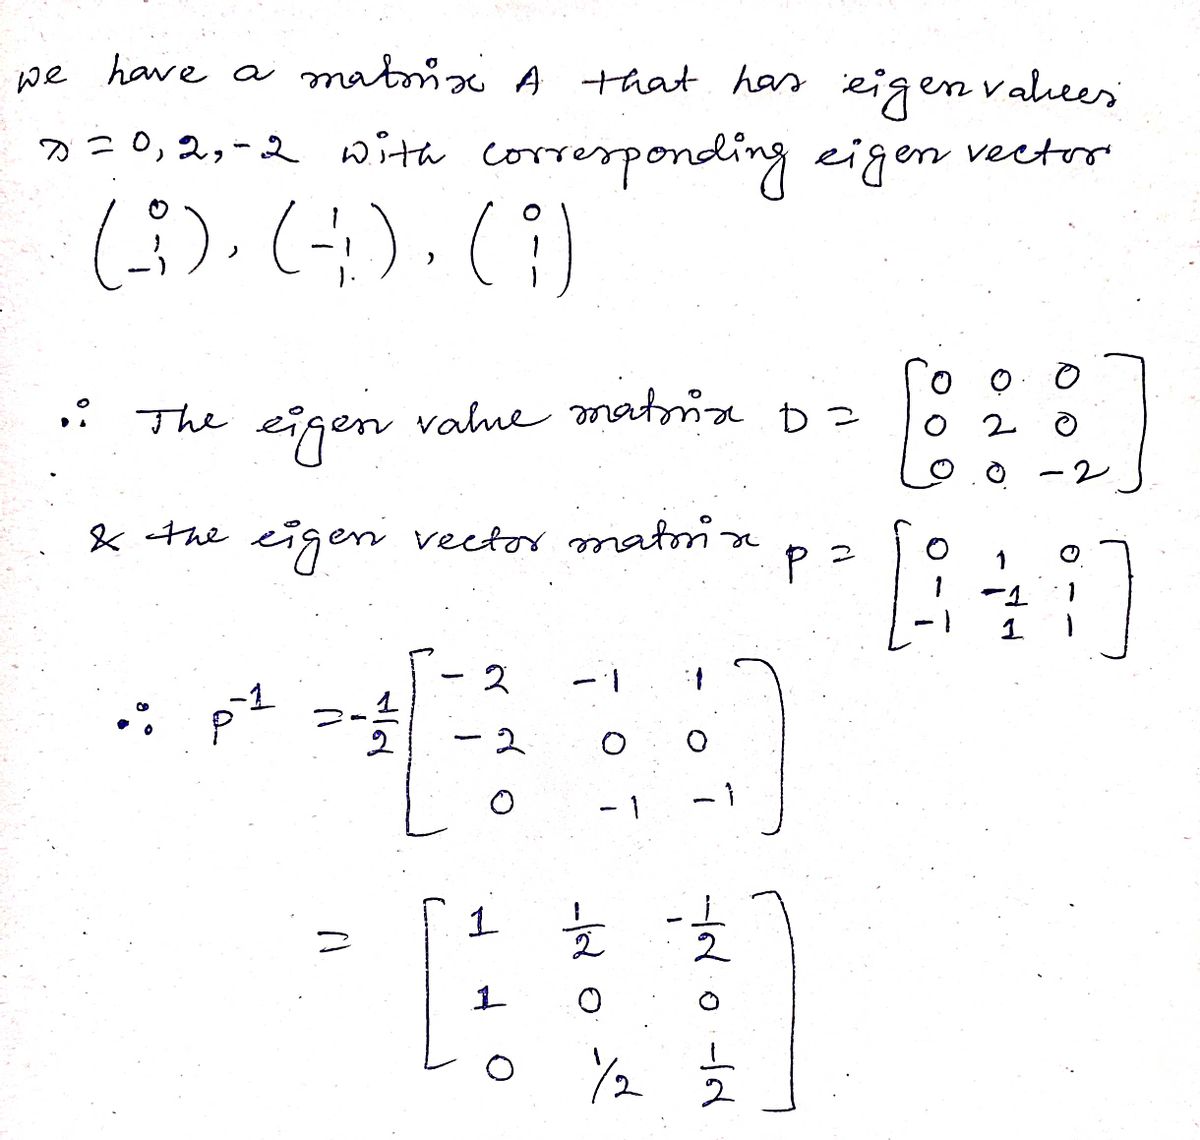 we have a matrix A that has eigen values
λ = 0, 2, -2 with corresponding eigen vector
(0 1 -1), (1 -1 1), (0 1 1)
∴ The eigen value matrix D = [0 0 0
0 2 0
0 0 -2]
& the eigen vector matrix p = [0 1 0
1 -1 1
-1 1 1]
∴ p⁻¹ = -1/2 [-2 -1 1
-2 0 0
0 -1 -1]
= [1 1/2 -1/2
1 0 0
0 1/2 1/2]